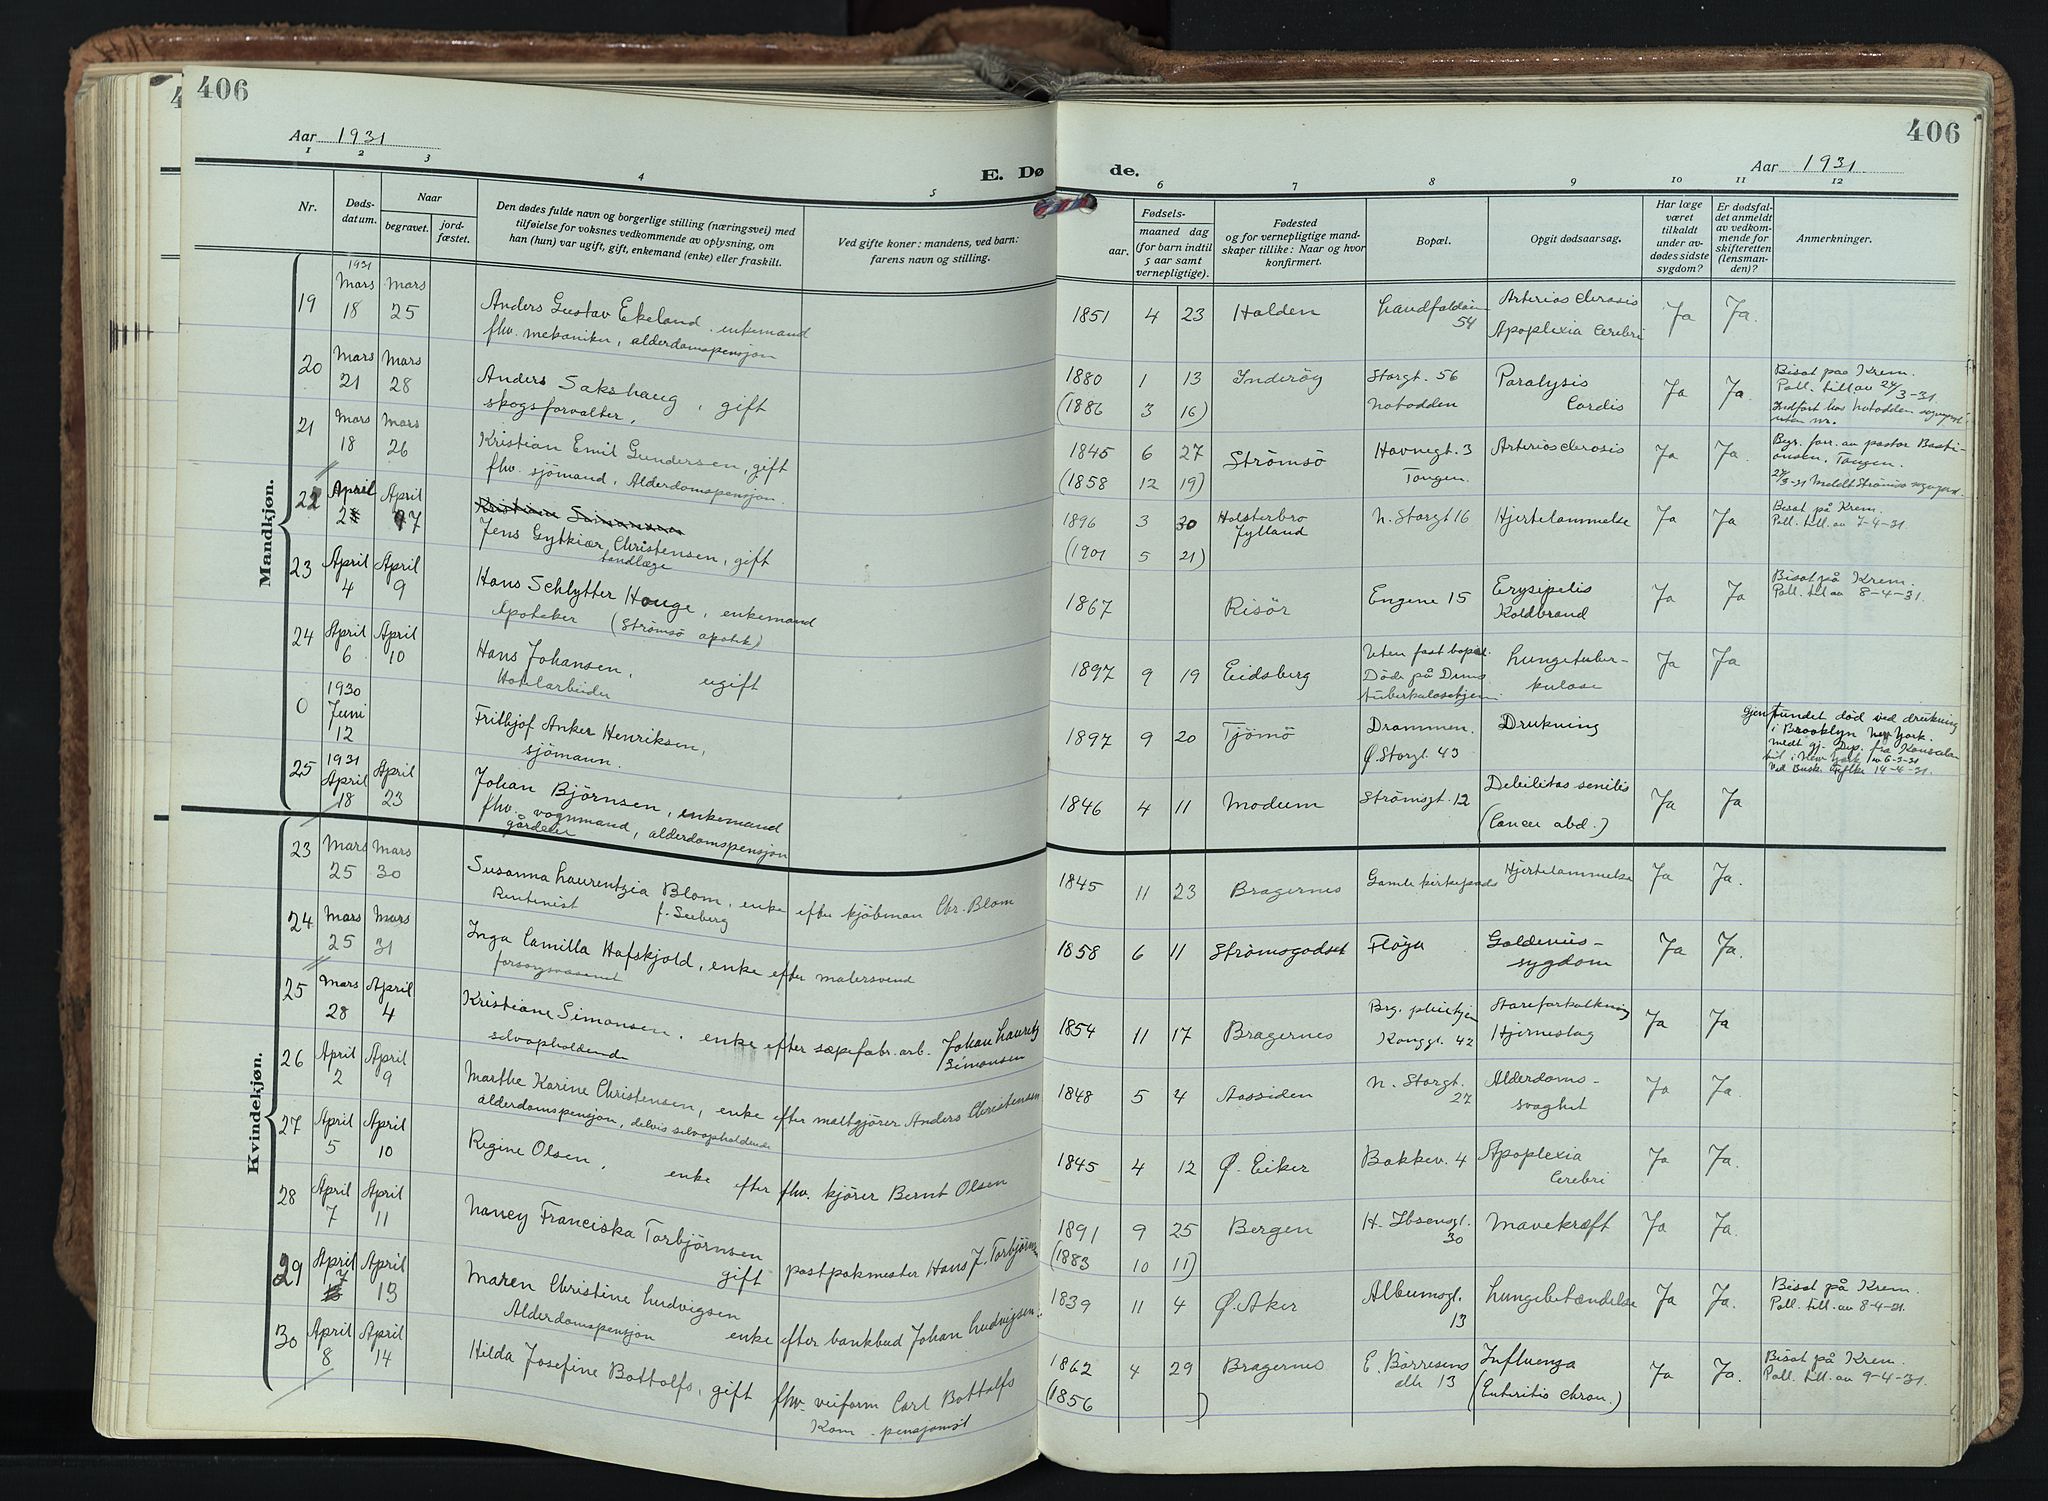 406
Aar 1931
E. Dø
1 2 3 4 5
Nr.
Døds-
datum.
Naar
begravet.
jord-
fæstet.
Den dødes fulde navn og borgerlige stilling (næringsvei) med
tilføielse for voksnes vedkommende av oplysning, om
han (hun) var ugift, gift, enkemand (enke) eller fraskilt.
Ved gifte koner: mandens, ved barn:
farens navn og stilling.
Mandkjøn.
1931
19 Mars 18 Mars 25 Anders Gustav Ekeland, enkemand
fhv. mekaniker, alderdomspensjon
20 Mars 21 Mars 28 Anders Sakshaug, gift
skogsforvalter,
21 Mars 18 Mars 26 Kristian Emil Gundersen, gift
fhv. sjömand, Alderdomspensjon.
22 April 2 April 7 Jens Gytkiær Christensen, gift
tandlæge
23 April 4 April 9 Hans Schlytter Houge, enkemand
Apoteker (Strömsö apotek)
24 April 6 April 10 Hans Johansen, ugift
Hotelarbeider
0 1930 Juni 12 Frithjof Anker Henriksen,
sjömann.
25 1931 April 18 April 23 Johan Björnsen, enkemand
fhv. vognmand, alderdomspensjon
gårdeier
Kvindekjøn.
23 Mars 25 Mars 30 Susanna Laurentzia Blom, enke efter kjöbman Chr. Blom
Rentenist f. Seeberg
24 Mars 25 Mars 31 Inga Camilla Hafskjold, enke efter malersvend
forsorgsvæsenet
25 Mars 28 April 4 Kristiane Simonsen, enke efter sæpefabr. arb. Johan Lauritz
selvopholdende Simonsen
26 April 2 April 9 Marthe Karine Christensen, enke efter maltgjörer Anders Christensen
alderdomspensjon, delvis selvopholdende
27 April 5 April 10 Regine Olsen, enke efter fhv. kjörer Bernt Olsen
28 April 7 April 11 Nancy Franciska Torbjörnsen
gift postpakmester Hans J. Torbjörnsen
29 April 7 April 13 Maren Christine Ludvigsen
Alderdomspensjon enke efter bankbud Johan Ludvigsen
30 April 8 April 14 Hilda Josefine Bottolfs, gift fhv. veiform Carl Bottolfs
Kom. pensjonist
406
Aar 1931
de.
6 7 8 9 10 11 12
Fødsels-
aar.
maaned dag
(for barn indtil
5 aar samt
vernepligtige).
Fødested
og for vernepligtige mand-
skaper tillike: Naar og hvor
konfirmert.
Bopæl.
Opgit dødsaarsag.
Har læge
været
tilkaldt
under av-
dødes sidste
sygdom?
Er dødsfal-
det anmeldt
av vedkom-
mende for
skifteretten
(lensman-
den)?
Anmerkninger.
1851 4 23 Halden Landfaldöen 54 Arteriosclerosis
Apoplexia Cerebri Ja Ja.
1880 1 13 Inderöy Storgt. 56 Paralysis Ja Ja. Bisat paa Krem.
Poll. till av 24/3-31.
(1886 3 16) Notodden Cordis Indfört hos Notodden sognepr.
uten nr.
1845 6 27 Strömsö Havnegt. 3 Arteriosclerosis Ja Ja. Begr. forr. av pastor Basti-
ansen, Tangen.
(1858 12 19) Tangen. 27/3-31 Meldt Strömsö sogneprest.
1896 3 30 Holsterbro N. Storgt 16 Hjertelammelse Ja Ja Bisat på Krem.
Jylland Poll. till. av 7-4-31.
(1901 5 21)
1867 Risör Engene 15 Erysipelis
Koldbrand Ja Ja Bisat på Krem.
Poll. till av 8-4-31.
1897 9 19 Eidsberg Uten fast bopæl.
Döde på Drms
tuberkulosehjem Lungetuber-
kulose Ja Ja
1897 9 20 Tjömö Drammen.
Ø. Storgt. 43 Drukning Gjenfundet död ved drukning
i Brooklyn New York.
1846 4 11 Modum Strömsgt. 12 Debilitas senilis
(Cancer abd.) Ja Ja
1845 11 23 Bragernes Gamle kirkeplads Hjertelammelse Ja Ja.
1858 6 11 Strömsgodset Flöya Galdenus-
sygdom Ja Ja.
1854 11 17 Bragernes Brg. pleiehjem
Konggt. 42 Hjerneslag Ja Ja
1848 5 4 Aassiden N. Storgt.
27 Alderdoms-
svaghet Ja Ja.
1845 4 12 Ø. Eiker Bakkev. 4 Apoplexia
Cerebri Ja Ja.
1891 9 25 Bergen H. Ibsensgt.
30 Mavekræft Ja Ja.
(1883 10 11)
1839 11 4 Ø. Aker Albumsgt.
13 Lungebetændelse Ja Ja. Bisat på Krem.
Poll. till. av 8-4-31.
1862 4 29 Bragernes E. Börresens
alle 13 Influenza
(Enteritis chron.) Ja Ja. Bisat på Krem.
Poll. till. av 9-4-31.
(1856 )